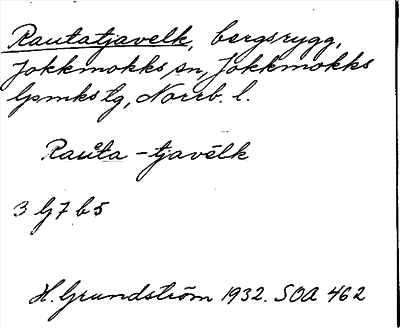 Rautatjavelk, bergsrygg,
Jokkmokks sn, Jokkmokks
lpmks tg, Norrb. l.
Rauta - tjavēlk
3 G7 b5
H. Grundström 1932. SOA 462